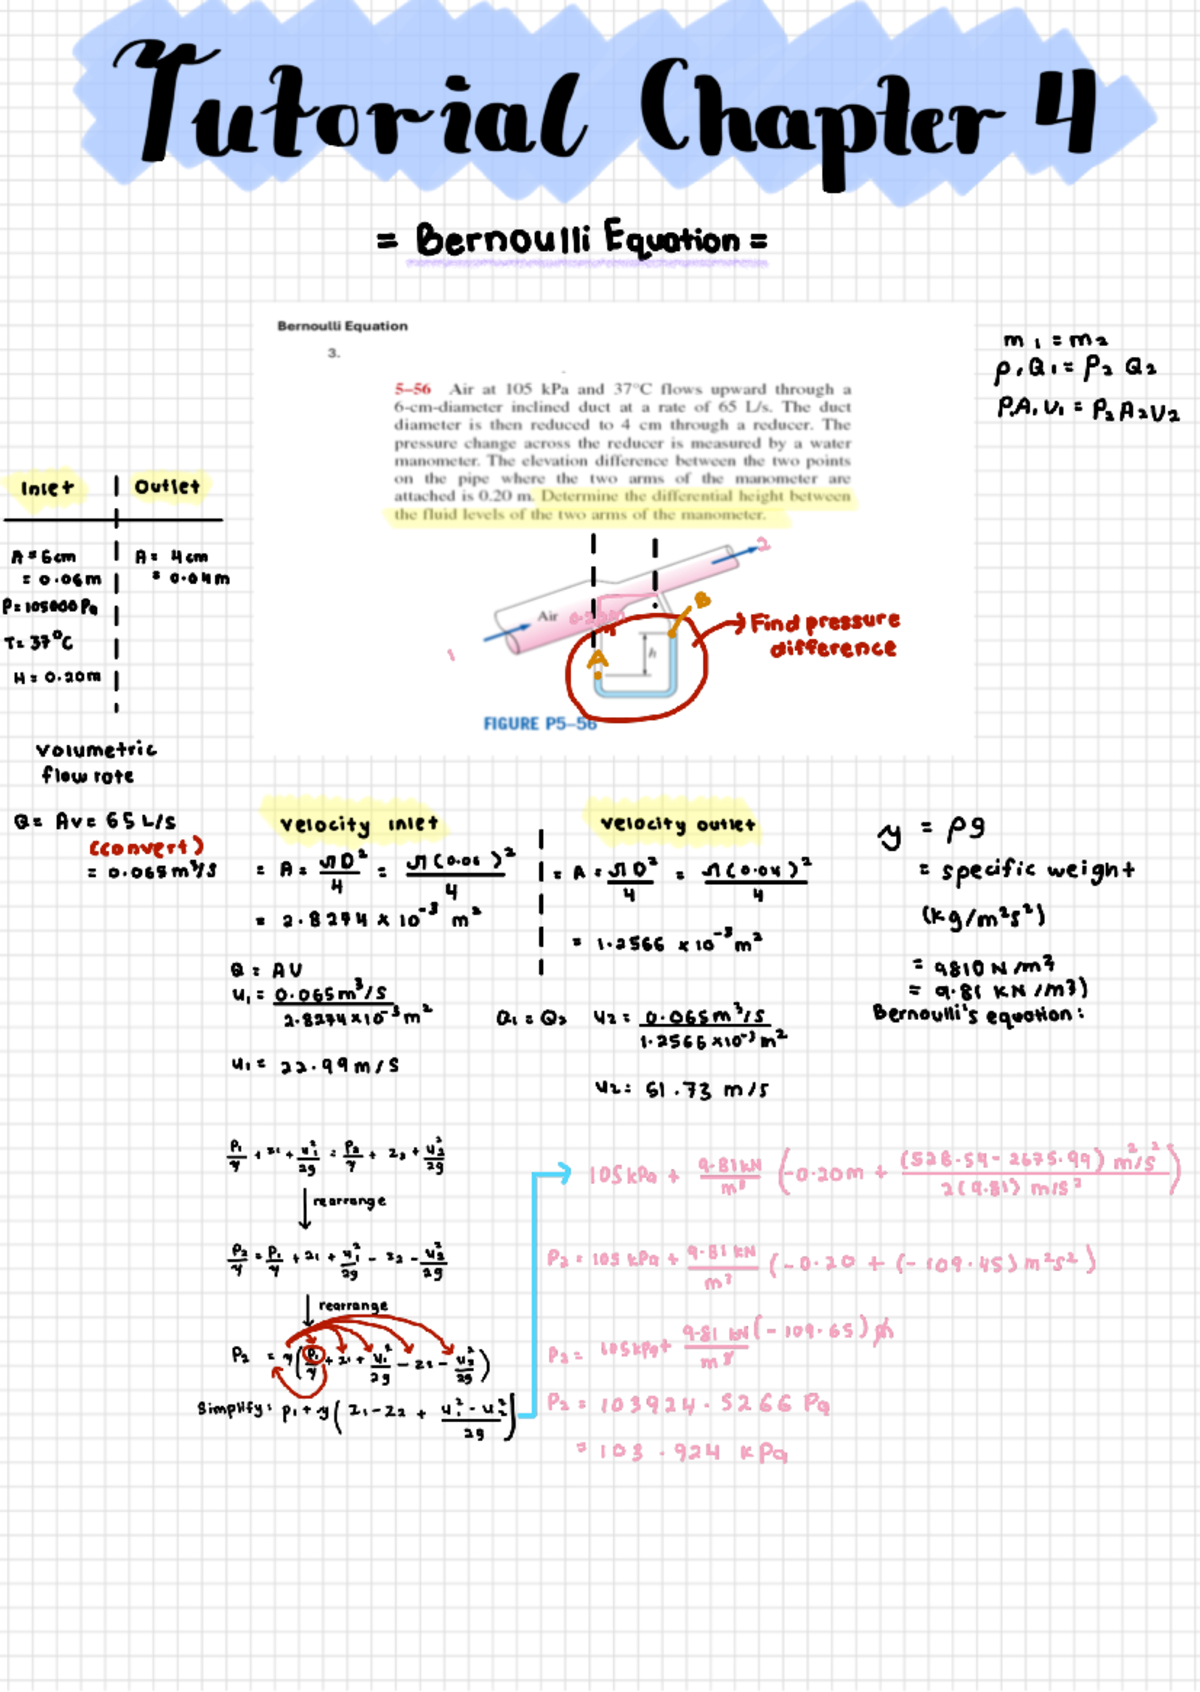 Tutorial Chapter 4
= Bernoulli Equation =
Bernoulli Equation
3.
5–56 Air at 105 kPa and 37°C flows upward through a
6-cm-diameter inclined duct at a rate of 65 L/s. The duct
diameter is then reduced to 4 cm through a reducer. The
pressure change across the reducer is measured by a water
manometer. The elevation difference between the two points
on the pipe where the two arms of the manometer are
attached is 0.20 m. Determine the differential height between
the fluid levels of the two arms of the manometer.
m₁ = m₂
ρ₁Q₁ = ρ₂ Q₂
ρA₁U₁ = ρ₂A₂U₂
Inlet | Outlet
A = 6cm | A = 4cm
= 0.06m | = 0.04m
P = 105000 Pa
T = 37°C
H = 0.20m
2
Air
0.20m
B
A
h
1
Find pressure
difference
FIGURE P5–56
volumetric
flow rate
Q = Av = 65 L/s
(convert)
= 0.065 m³/s
velocity inlet
= A = πD²/4 = π(0.06)²/4
= 2.8274 x 10⁻³ m²
Q = AU
u₁ = 0.065m³/s / 2.8274x10⁻³m²
u₁ = 22.99 m/s
velocity outlet
= A = πD²/4 = π(0.04)²/4
= 1.2566 x10⁻³m²
Q₁ = Q₂ u₂ = 0.065m³/s / 1.2566x10⁻³m²
u₂ = 51.73 m/s
γ = ρg
= specific weight
(kg/m²s²)
= 9810 N/m³
= 9.81 KN/m³)
Bernoulli's equation:
P₁/γ + z₁ + u₁²/2g = P₂/γ + z₂ + u₂²/2g
rearrange
P₂/γ = P₁/γ + z₁ + u₁²/2g - z₂ - u₂²/2g
rearrange
P₂ = γ(P₁/γ + z₁ + u₁²/2g - z₂ - u₂²/2g)
Simplify: P₁ + γ(z₁ - z₂ + u₁² - u₂²/2g)
105kPa + 9.81kN/m³ (-0.20m + (528.54 - 2675.99) m²/s²/2(9.81) m/s²)
P₂ = 105 kPa + 9.81 kN/m³ (-0.20 + (-109.45) m²s²)
P₂ = 105kPa + 9.81 kN/m³ (-109.65) m
P₂ = 103924.5266 Pa
= 103.924 kPa